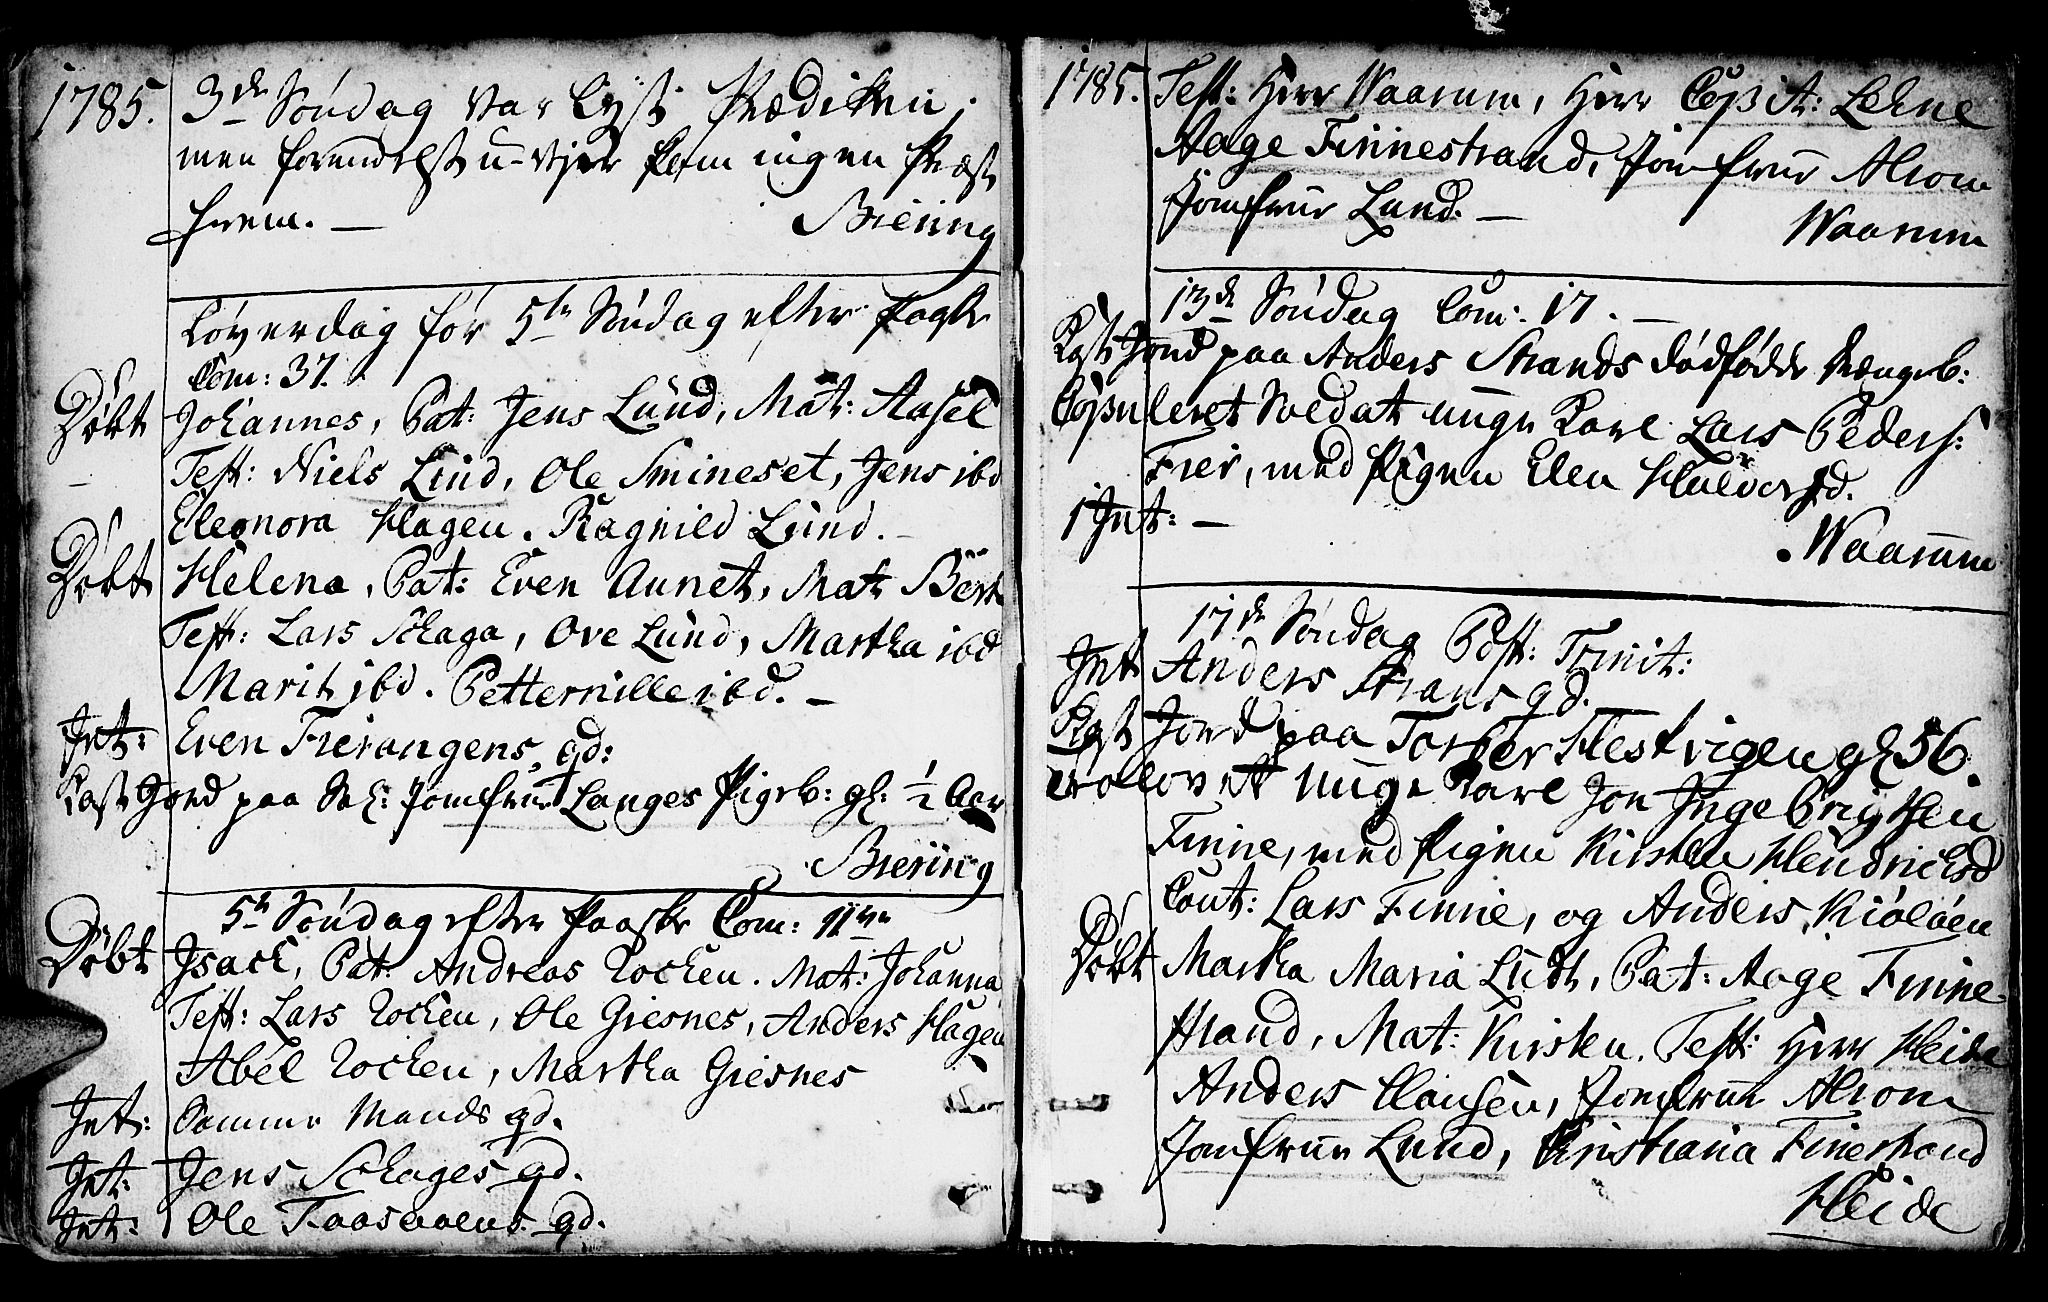 1785. 3de Søndag var lyst Prædiken;
men formedelst u-vejer kom ingen Præst
frem. — Biering
Løverdag før 5te Søndag efter Paaske
Com: 37.
Døbt Johannes, Pat: Jens Lund, Mat: Aasel
Test: Niels Lund, Ole Smineset, Jens ibd
Eleonora Hagen. Ragnild Lund. —
Døbt Helena, Pat: Even Aunet, Mat: Berte
Test: Lars Schaga, Ove Lund, Martha ibd
Marit ibd. Petternille ibd. —
Int: Even Fierangens gd:
Kast Jord paa Sal: Jomfrue Langes Pigeb: gl: ½ Aar
Biering
5te Søndag efter Paaske Com: 11ve
Døbt Isach, Pat: Andreas Rochen. Mat: Johanna,
Test: Lars Rochen, Ole Giesnes, Anders Hagen
Abel Rochen, Martha Giesnes
Int: Samme Mands gd.
Int: Jens Schages gd.
Int: Ole Faasaaens gd.
1785. Test: Herr Waarum, Herr Capit: Lehne
Aage Finnestrand, Jomfrue Alrom
Jomfrue Lund. — Waarum
13de Søndag Com: 17. —
Kast Jord paa Anders Strands dødfødde Drængeb:
Copuleret Soldat unge Karl Lars Peders:
Frei, med Pigen Elen Halvorsd.
1 Int: —
Waarum
17de Søndag Post: Trinit:
Int Anders Strans gd.
Kast Jord paa Torber Hestvigen gl 56.
trolovett unge Karl Jon Ingebrigtsen
Finne, med Pigen Kirsten Hendrichsd
Caut: Lars Finne, og Anders Kiøløen
Døbt Martha Maria Ludt, Pat: Aage Finne-
strand, Mat: Kirsten. Test: Herr Heide
Anders Hansen, Jomfrue Alrom
Jomfrue Lund, Kristiana Finestrand
Heide